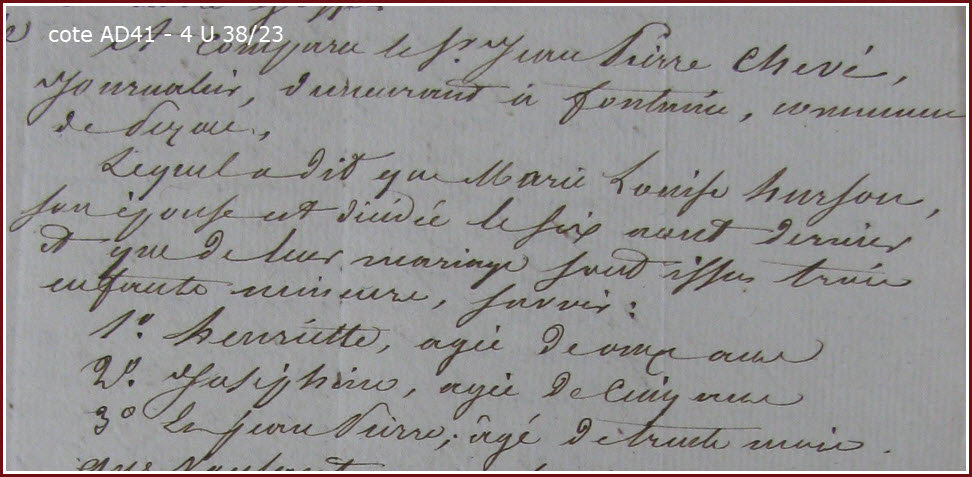 cote AD41 - 4 U 38/23
A Comparu le Sr. Jean Pierre Chevé,
Journalier, demeurant à fontaine, commune
de Pezou,
Lequel a dit que Marie Louise hurson,
son épouse est décédée le six aout dernier
et que de leur mariage sont issus trois
enfants mineurs, savoir :
1º. henriette, agée de onze ans
2º. Joséphine, agée de cinq ans
3º Jean Pierre, âgé de trente mois.